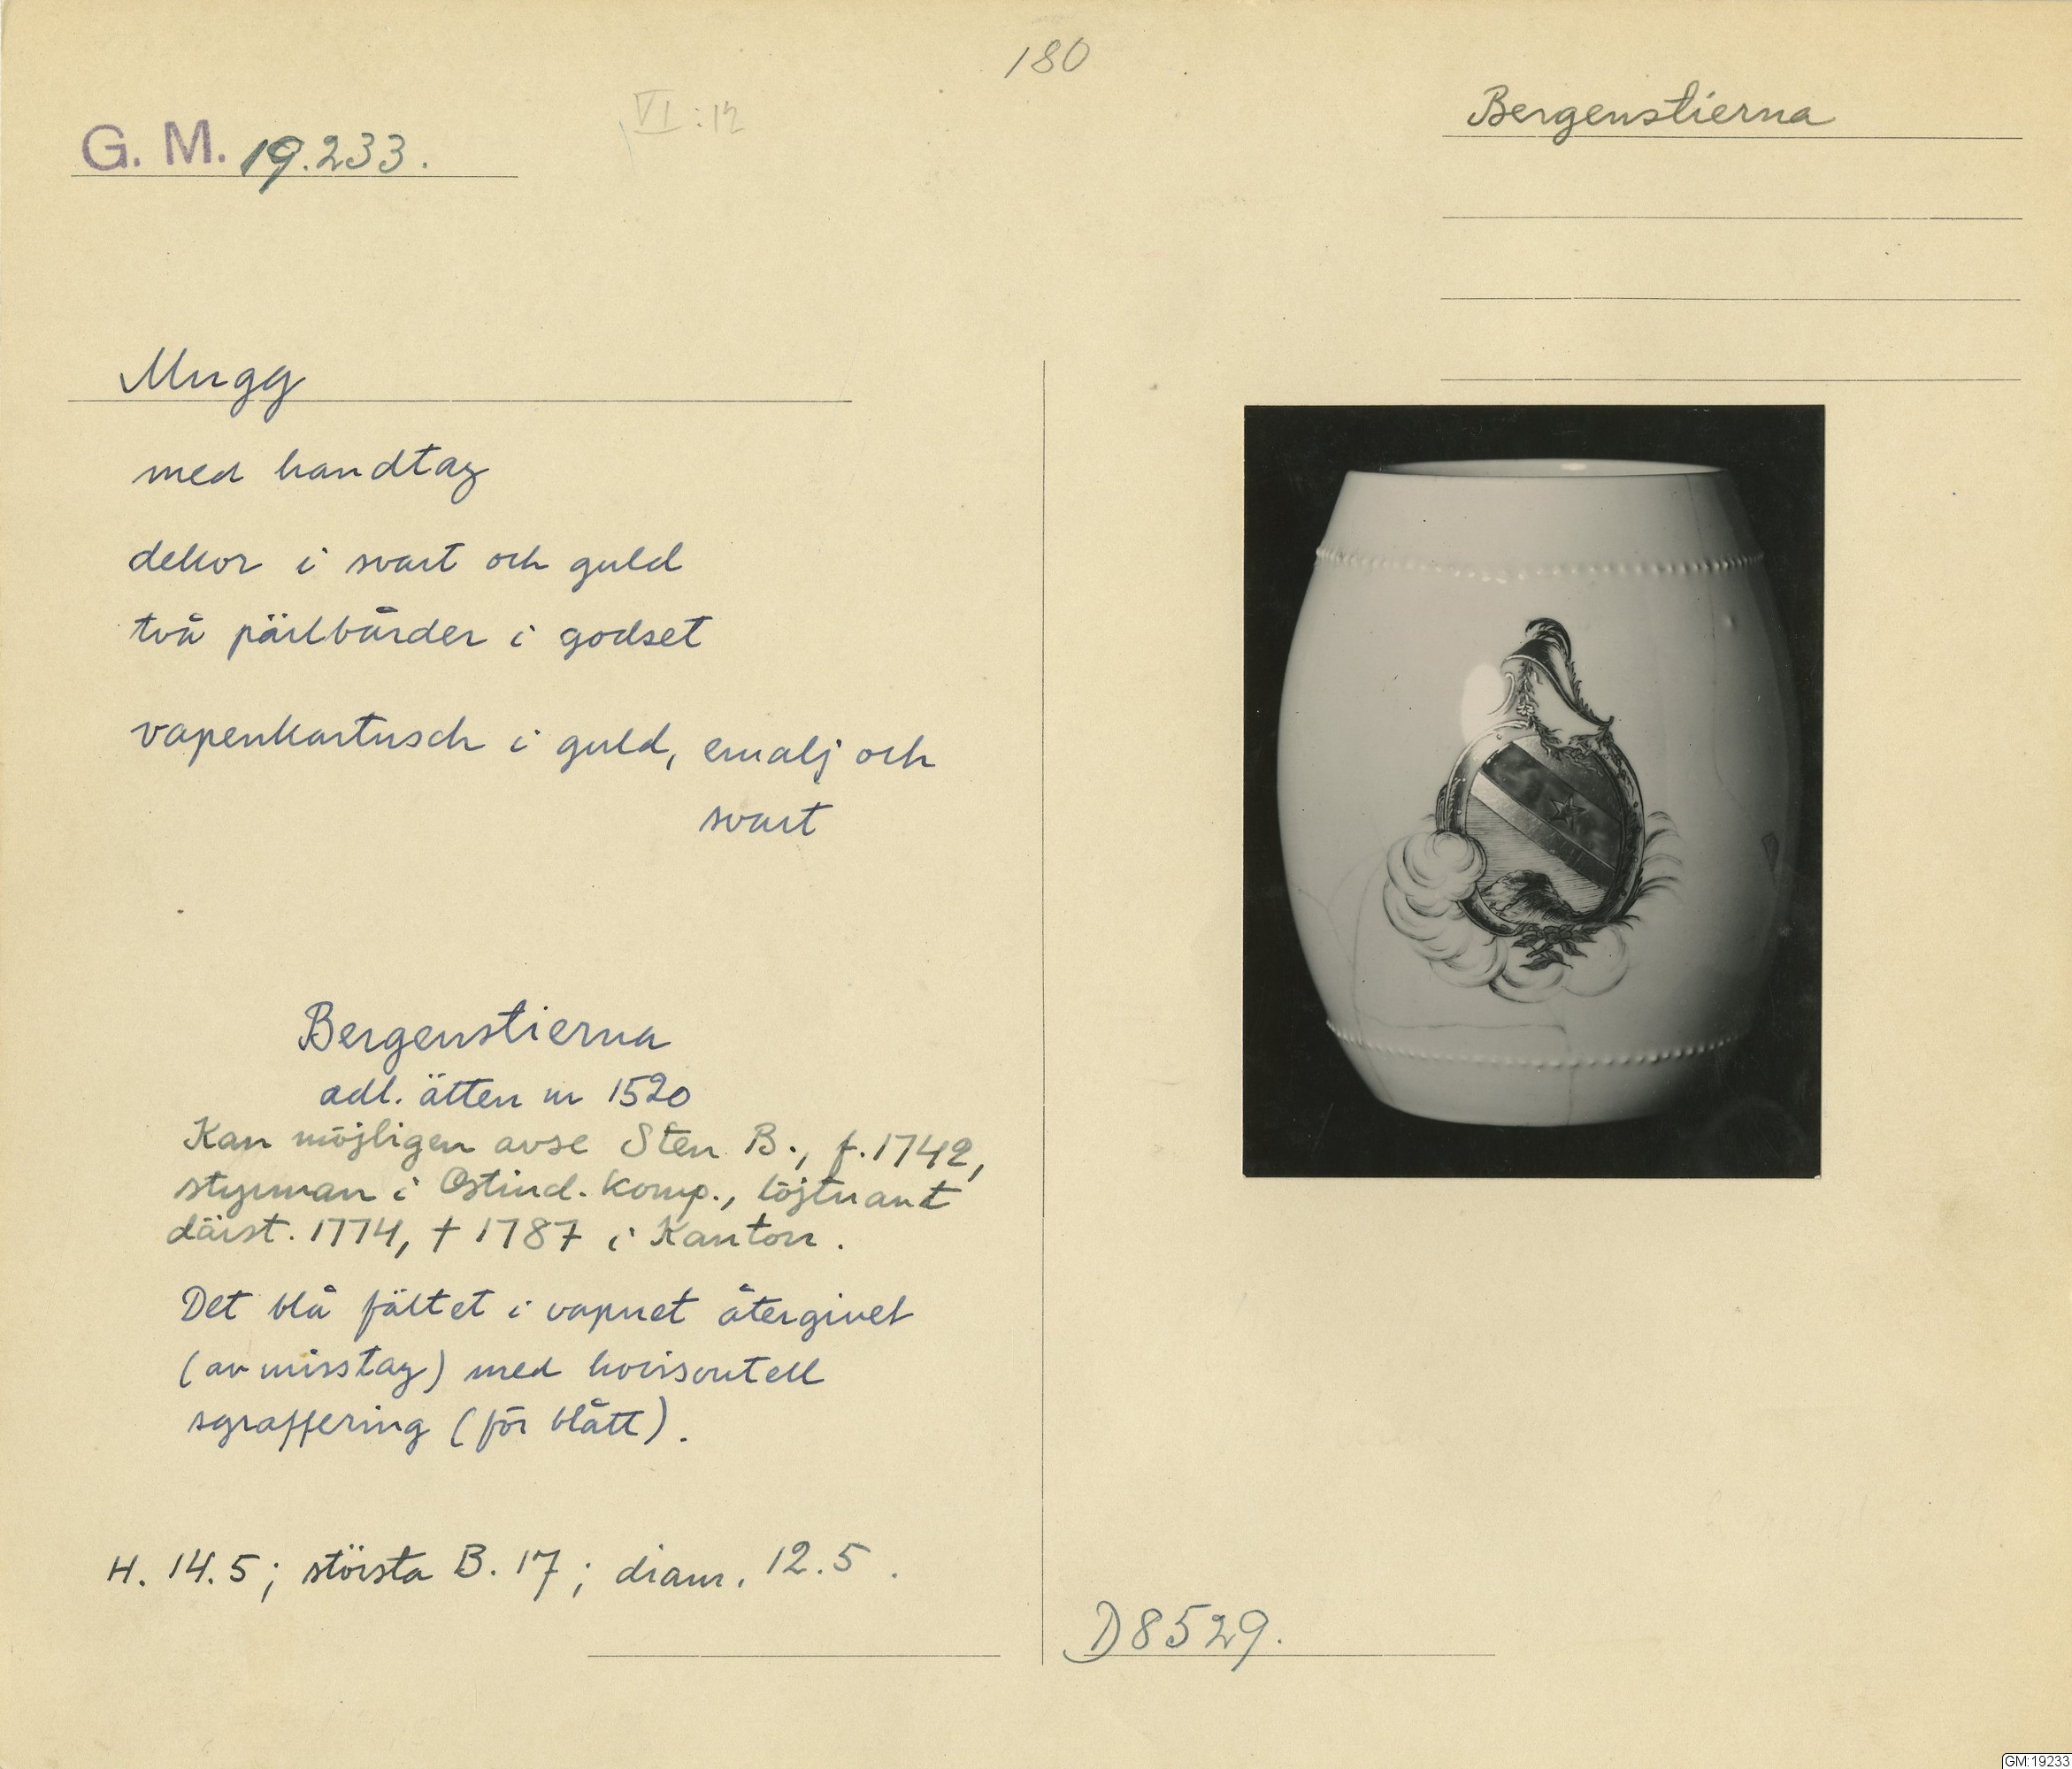 180
VI:12
Bergenstierna
G. M. 19.233.
Mugg
med handtag
dekor i svart och guld
två pärlbårder i godset
vapenkartusch i guld, emalj och
svart
Bergenstierna
adl. ätten nr 1520
Kan möjligen avse Sten B., f. 1742,
styrman i Ostind. Komp., löjtnant
därst. 1774, † 1787 i Kanton.
Det blå fältet i vapnet återgivet
(av misstag) med horisontell
sgraffering (för blått).
H. 14.5; största B. 17; diam. 12.5.
D8529.
GM:19233